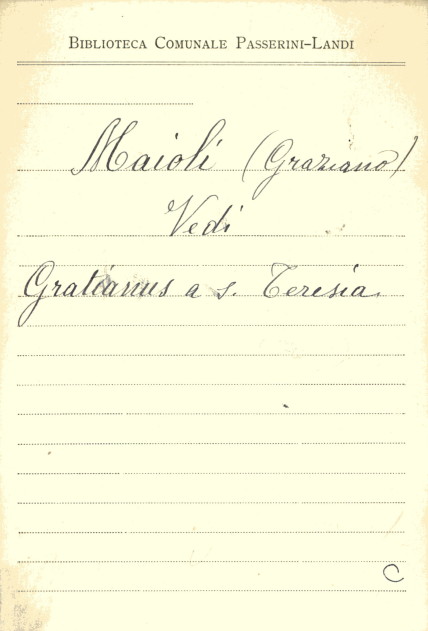 Biblioteca Comunale Passerini-Landi
Maioli (Graziano)
Vedi
Gratianus a s. Teresia.
C